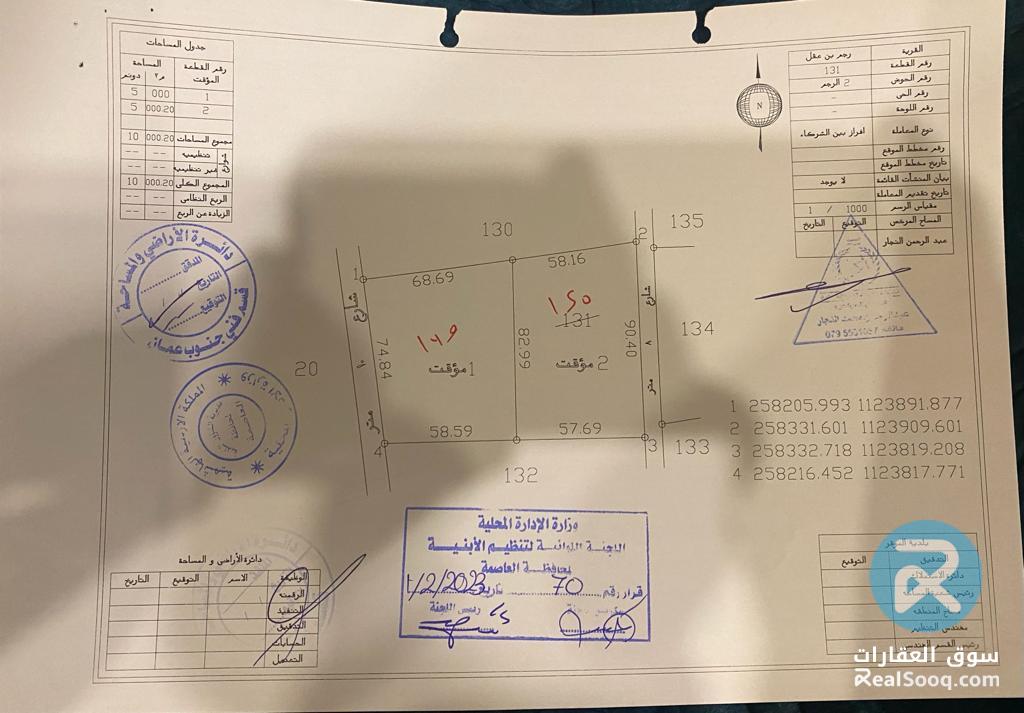 جدول المساحات
رقم القطعة المؤقت
المساحة
م٢
دونم
1
000
5
2
000.20
5
مجموع المساحات
000.20
10
تنظيمية
--
--
غير تنظيمية
--
--
المجموع الكلي
000.20
10
الربع النظامي
--
--
الزيادة عن الربع
--
--
N
القرية
رجم بن عقل
رقم القطعة
131
رقم الحوض
2 الرجم
رقم الحي
-
رقم اللوحة
-
نوع المعاملة
افراز بين الشركاء
رقم مخطط الموقع
تاريخ مخطط الموقع
بيان المنشآت القائمة
لا يوجد
تاريخ تقديم المعاملة
مقياس الرسم
1 / 1000
المساح المرخص
التوقيع
التاريخ
عبد الرحمن النجار
دائرة الأراضي والمساحة
المدقق
التاريخ
التوقيع
قسم فني جنوب عمان
المملكة الاردنية الهاشمية
130
135
2
1
68.69
58.16
شارع
١٠
متر
74.84
١٤٩
1 مؤقت
82.99
١٥٠
131
2 مؤقت
90.40
شارع
٧
متر
134
20
58.59
57.69
4
3
133
132
1 258205.993 1123891.877
2 258331.601 1123909.601
3 258332.718 1123819.208
4 258216.452 1123817.771
وزارة الإدارة المحلية
اللجنة اللوائية لتنظيم الأبنية
بمحافظة العاصمة
قرار رقم 70 تاريخ 1/2/2023
رئيس اللجنة
دائرة الأراضي و المساحة
الوظيفة
الاسم
التوقيع
التاريخ
الرقمنة
التنفيذ
التدقيق
الحسابات
التعديل
التدقيق
التوقيع
سوق العقارات
RealSooq.com